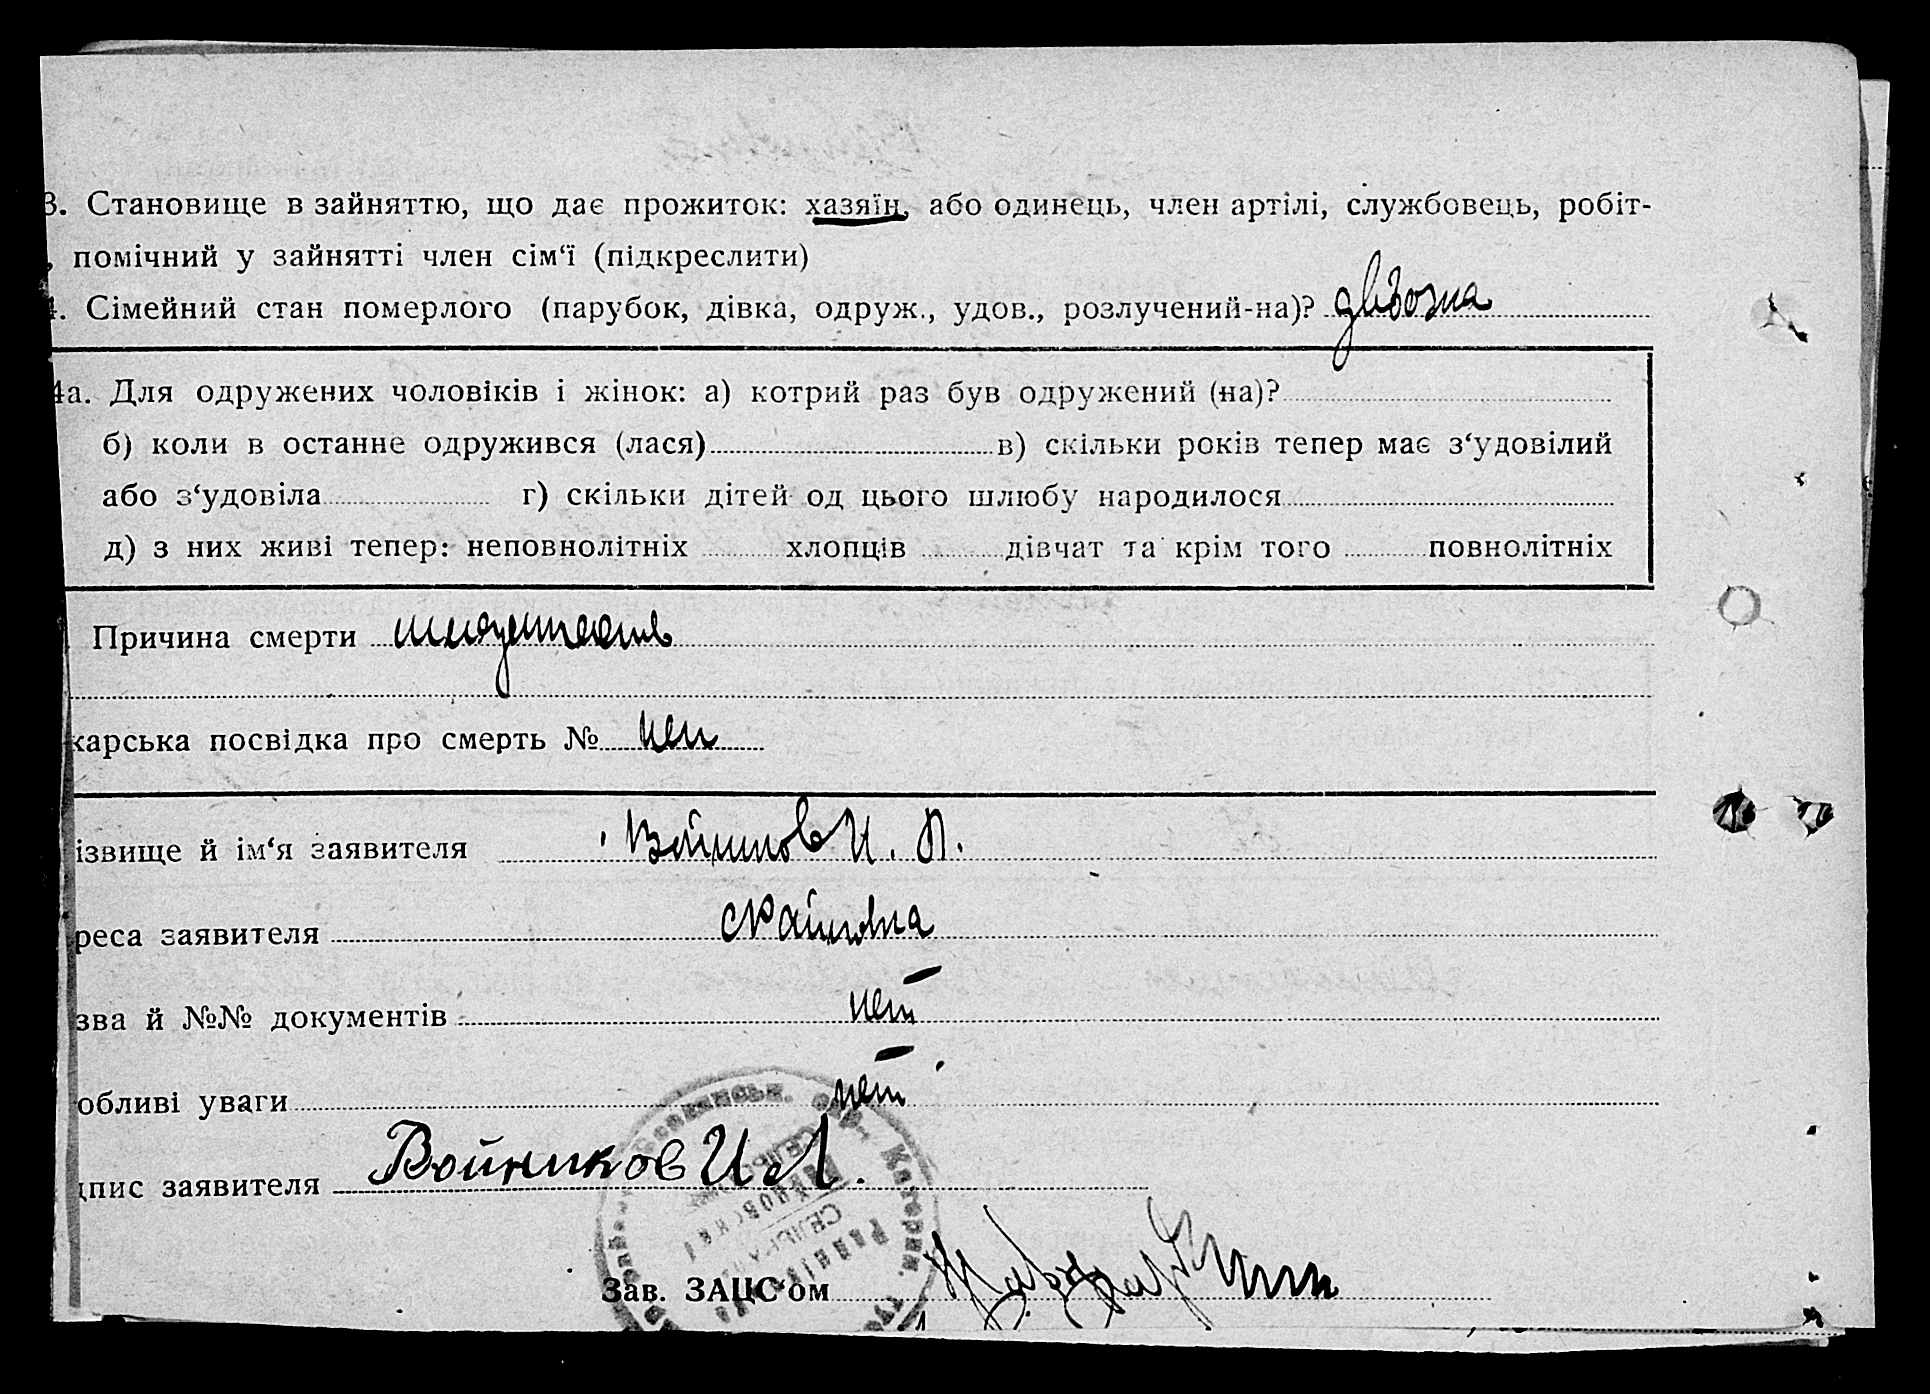 3. Становище в зайняттю, що дає прожиток: хазяїн, або одинець, член артілі, службовець, робіт-
, помічний у зайнятті член сім‘ї (підкреслити)
4. Сімейний стан померлого (парубок, дівка, одруж., удов., розлучений-на)?
4а. Для одружених чоловіків і жінок: а) котрий раз був одружений (на)?
б) коли в останне одружився (лася) в) скільки років тепер має з‘удовілий
або з‘удовіла г) скільки дітей од цього шлюбу народилося
д) з них живі тепер: неповнолітніх хлопців дівчат та крім того повнолітніх
Причина смерти
карська посвідка про смерть № нет
ізвище й ім‘я заявителя Войников И. Л.
реса заявителя
зва й №№ документів нет
обливі уваги нет
дпис заявителя Войников И Л.
Зав. ЗАЦС‘ом